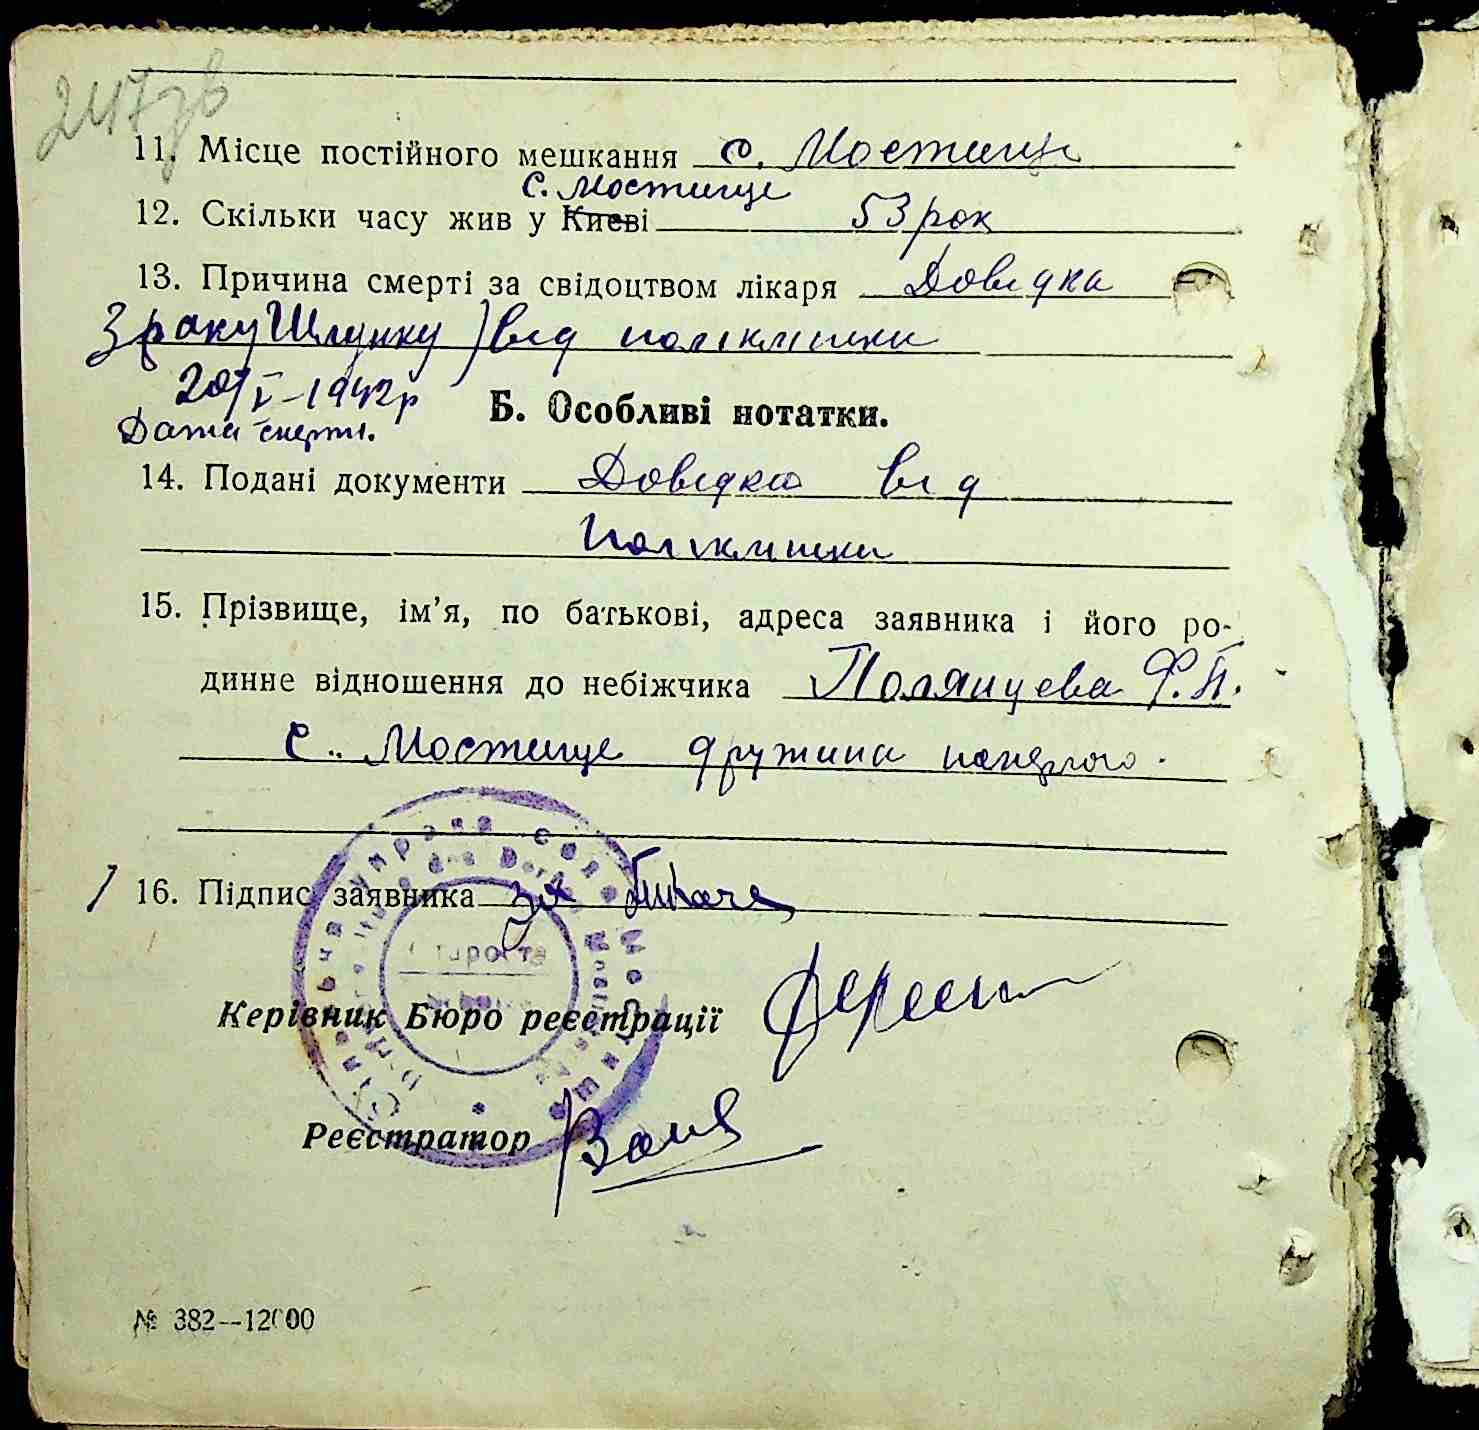 247зв
11. Місце постійного мешкання с. Мостище
с. Мостище
12. Скільки часу жив у Києві 53 рок
13. Причина смерті за свідоцтвом лікаря Довідка
З раку Шлунку) від поліклініки
20/V-1942р
Дата смерти.
Б. Особливі нотатки.
14. Подані документи Довідка від
Поліклініки
15. Прізвище, ім’я, по батькові, адреса заявника і його ро-
динне відношення до небіжчика Полянцева Ф.П.
с. Мостище дружина померлого.
16. Підпис заявника за
Староста
Керівник Бюро реєстрації
Реєстратор
№ 382—12000